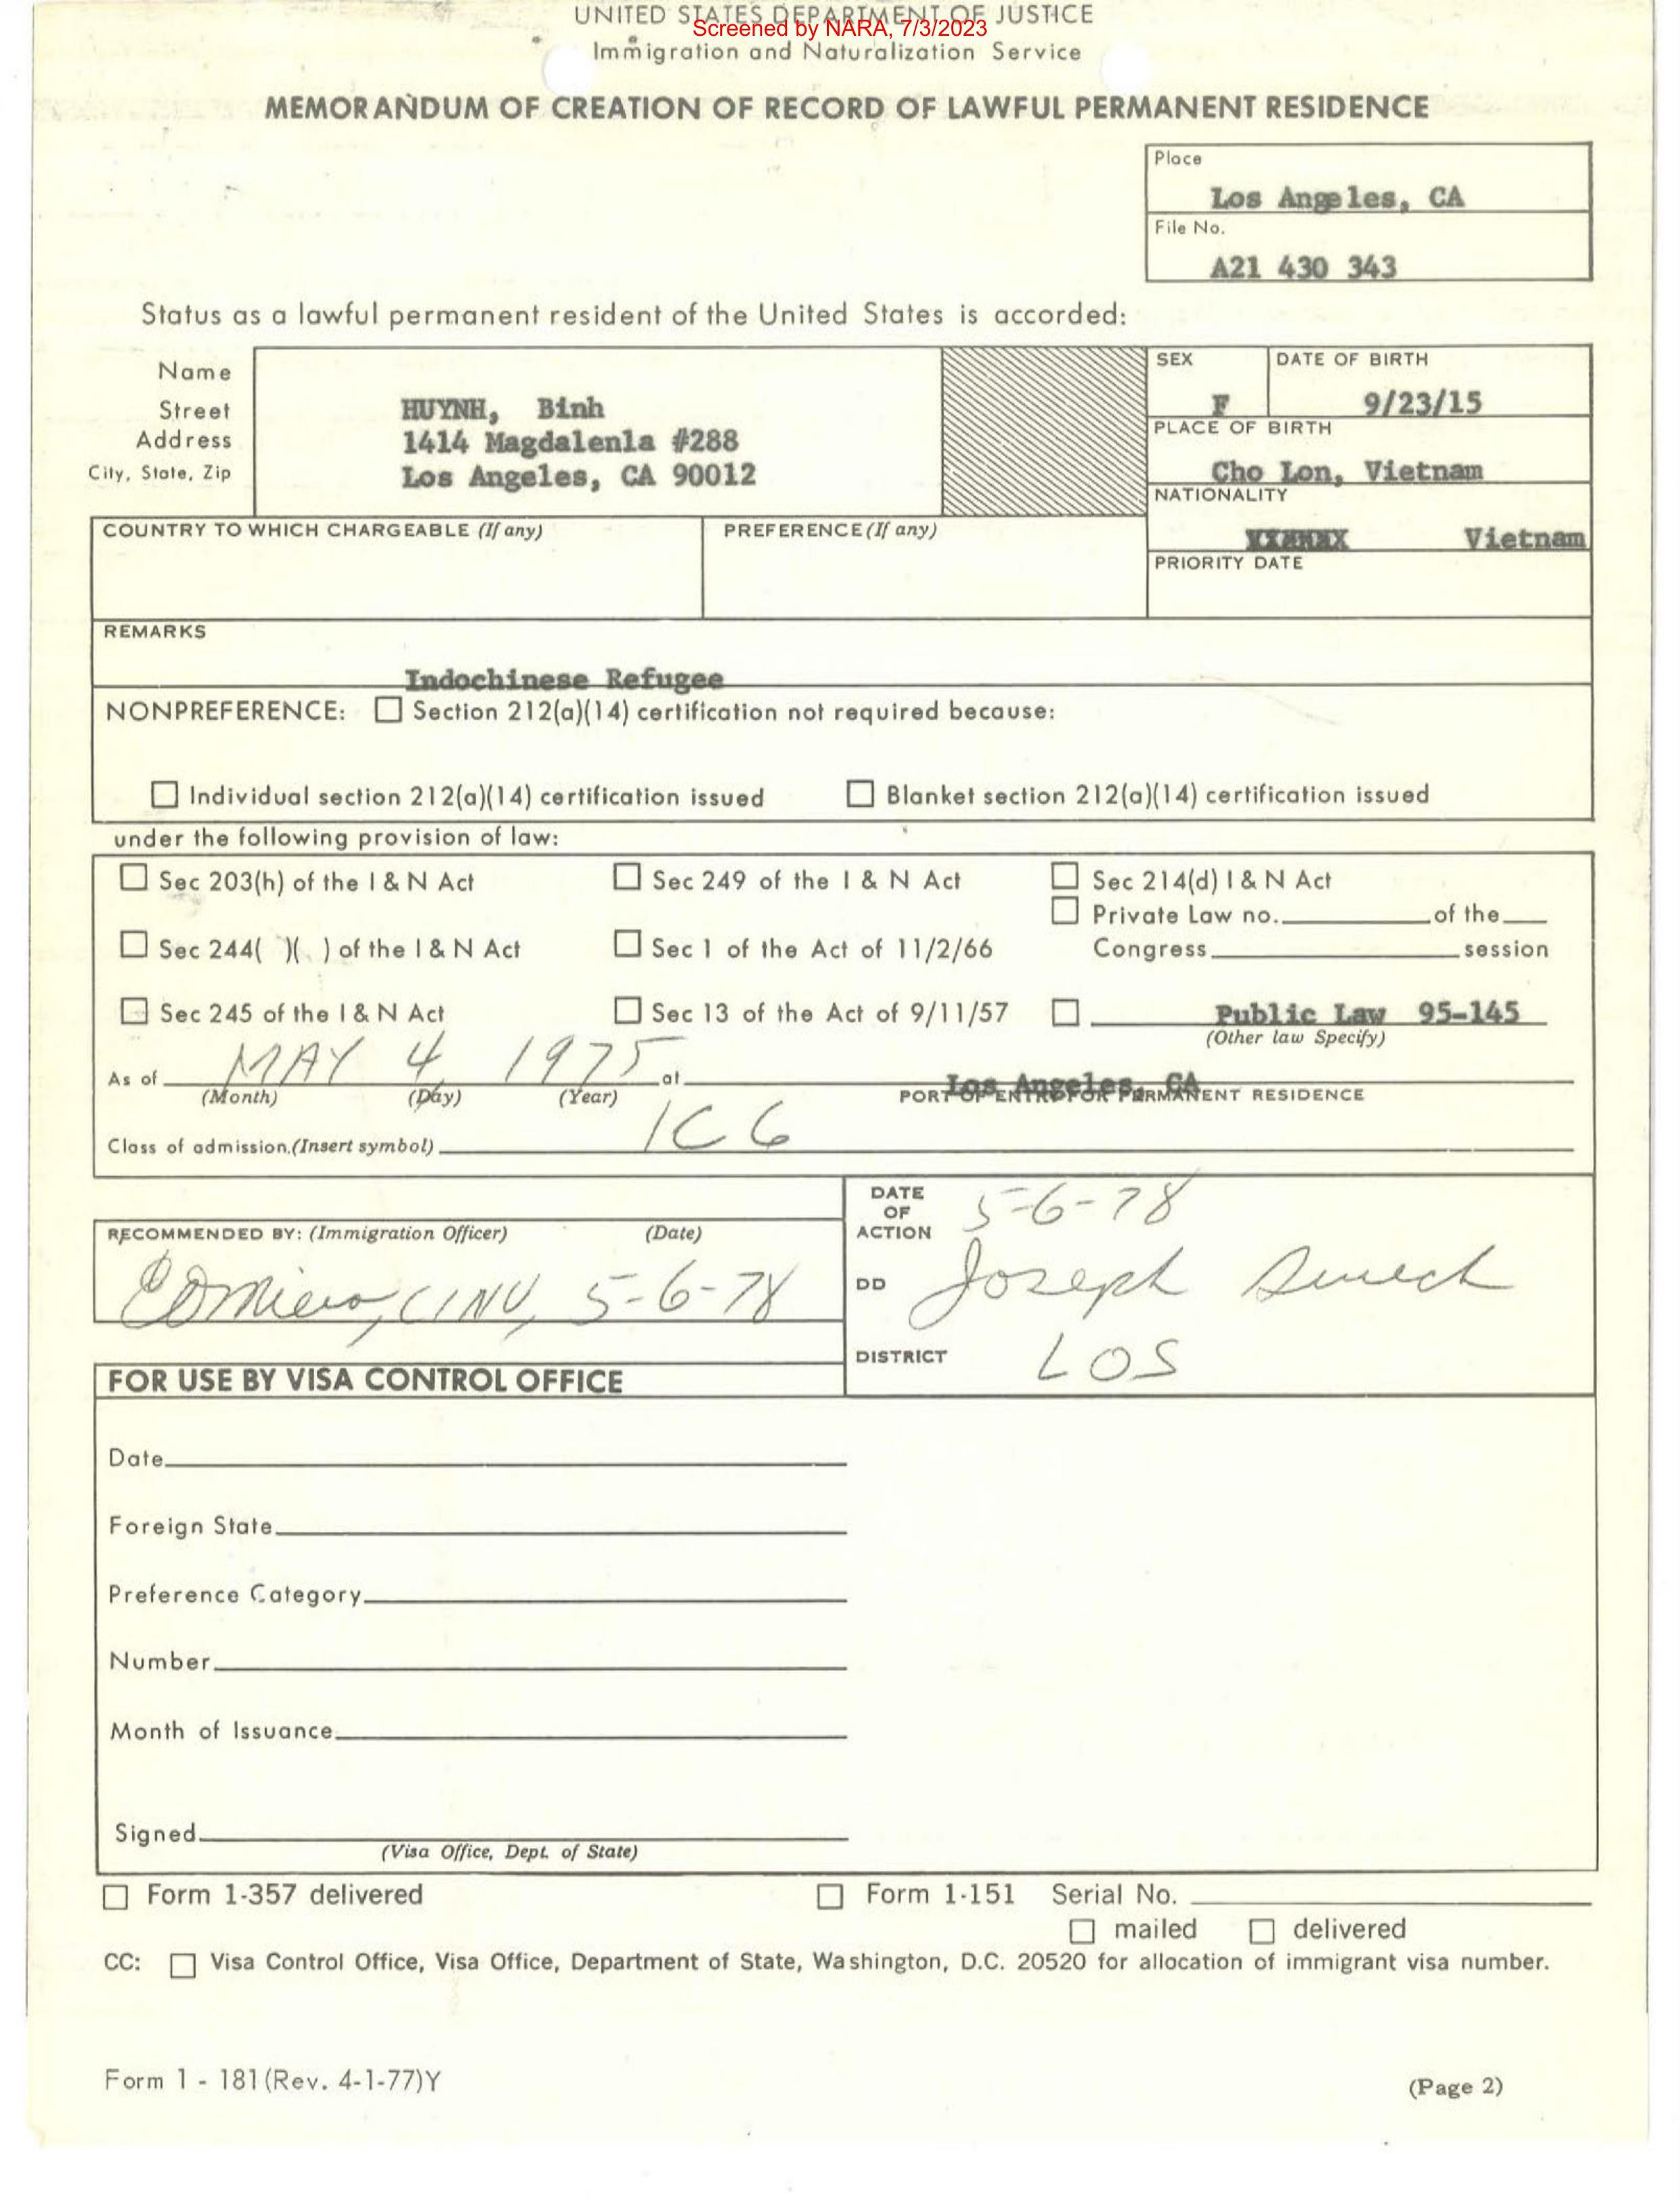 UNITED STATES DEPARTMENT OF JUSTICE
Screened by NARA, 7/3/2023
Immigration and Naturalization Service
MEMORANDUM OF CREATION OF RECORD OF LAWFUL PERMANENT RESIDENCE
Place
Los Angeles, CA
File No.
A21 430 343
Status as a lawful permanent resident of the United States is accorded:
Name
Street
Address
City, State, Zip
HUYNH, Binh
1414 Magdalenla #288
Los Angeles, CA 90012
SEX
F
DATE OF BIRTH
9/23/15
PLACE OF BIRTH
Cho Lon, Vietnam
NATIONALITY
Vietnam
COUNTRY TO WHICH CHARGEABLE (If any)
PREFERENCE (If any)
PRIORITY DATE
REMARKS
Indochinese Refugee
NONPREFERENCE: Section 212(a)(14) certification not required because:
Individual section 212(a)(14) certification issued Blanket section 212(a)(14) certification issued
under the following provision of law:
Sec 203(h) of the I & N Act Sec 249 of the I & N Act Sec 214(d) I & N Act
Private Law no. of the
Sec 244( )( ) of the I & N Act Sec 1 of the Act of 11/2/66 Congress session
Sec 245 of the I & N Act Sec 13 of the Act of 9/11/57 Public Law 95-145
(Other law Specify)
As of MAY 4, 1975 at Los Angeles, CA
(Month) (Day) (Year) PORT OF ENTRY FOR PERMANENT RESIDENCE
Class of admission.(Insert symbol) IC6
RECOMMENDED BY: (Immigration Officer) (Date)
CINV, 5-6-78
DATE OF ACTION 5-6-78
DD Joseph
DISTRICT LOS
FOR USE BY VISA CONTROL OFFICE
Date
Foreign State
Preference Category
Number
Month of Issuance
Signed
(Visa Office, Dept. of State)
Form 1-357 delivered Form 1-151 Serial No.
mailed delivered
CC: Visa Control Office, Visa Office, Department of State, Washington, D.C. 20520 for allocation of immigrant visa number.
Form 1 - 181 (Rev. 4-1-77)Y
(Page 2)